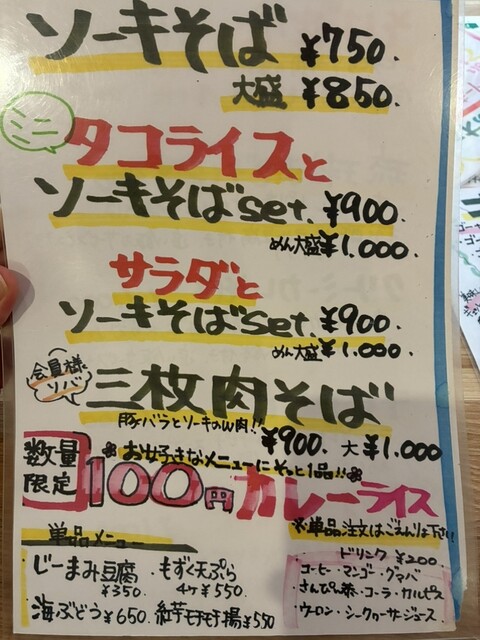 ソーキそば ¥750.
大盛 ¥850.
ミニ
タコライスと
ソーキそばset. ¥900.
めん大盛¥1.000
サラダと
ソーキそばset. ¥900.
めん大盛 ¥1.000
会員様ソバ
三枚肉そば
豚バラとソーキのW肉!!
¥900. 大 ¥1.000
数量限定
お好きなメニューにそっと1品!!
100円カレーライス
※単品注文はごえんりょ下さい!!
単品メニュー
じーまみ豆腐 ¥350.
もずく天ぷら 4ヶ ¥550.
海ぶどう ¥650.
紅芋モチモチ揚 ¥550
ドリンク ¥200.
コーヒー・マンゴー・グァバ
さんぴん茶・コーラ・カルピス
ウーロン・シークヮーサージュース